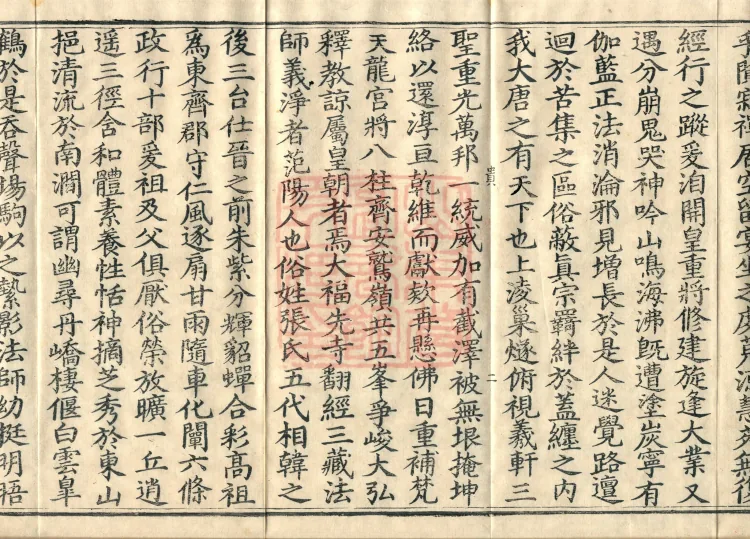 寂禪居空留宴坐之處荒涼慧苑無復
經行之蹤爰洎開皇重將修建旋逢大業又
遇分崩鬼哭神吟山鳴海沸旣遭塗炭寧有
伽藍正法消淪邪見增長於是人迷覺路邅
迴於苦集之區俗蔽眞宗羈絆於蓋纏之內
我大唐之有天下也上淩巢燧俯視羲軒三
貴 二
聖重光萬邦一統威加有截澤被無垠掩坤
絡以還淳亘乾維而獻欵再懸佛日重補梵
天龍宮將八柱齊安鷲嶺共五峯爭峻大弘
釋教諒屬皇朝者焉大福先寺翻經三藏法
師義淨者范陽人也俗姓張氏五代相韓之
後三台仕晉之前朱紫分輝貂蟬合彩高祖
爲東齊郡守仁風逐扇甘雨隨車化闡六條
政行十部爰祖及父俱厭俗榮放曠一丘逍
遥三徑舍和體素養性恬神摘芝秀於東山
挹清流於南澗可謂幽尋丹嶠棲偃白雲臯
鶴於是吞聲場駒以之縶影法師幼挺明晤